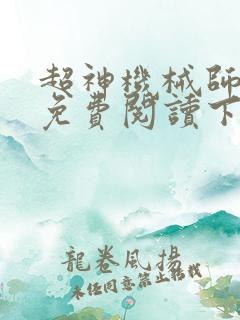 超神機械師
免費閱讀下
龍卷風揚
未經同意禁止轉載